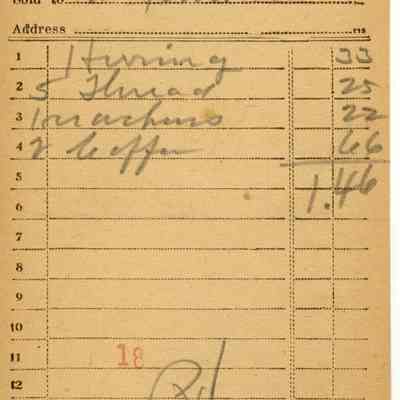 Sold to
Address
1 Herring 33
2 5 Thread 25
3 1 nachos 22
4 2 Coffee 66
5 1.46
6
7
8
9
10
11 18
12 Pd